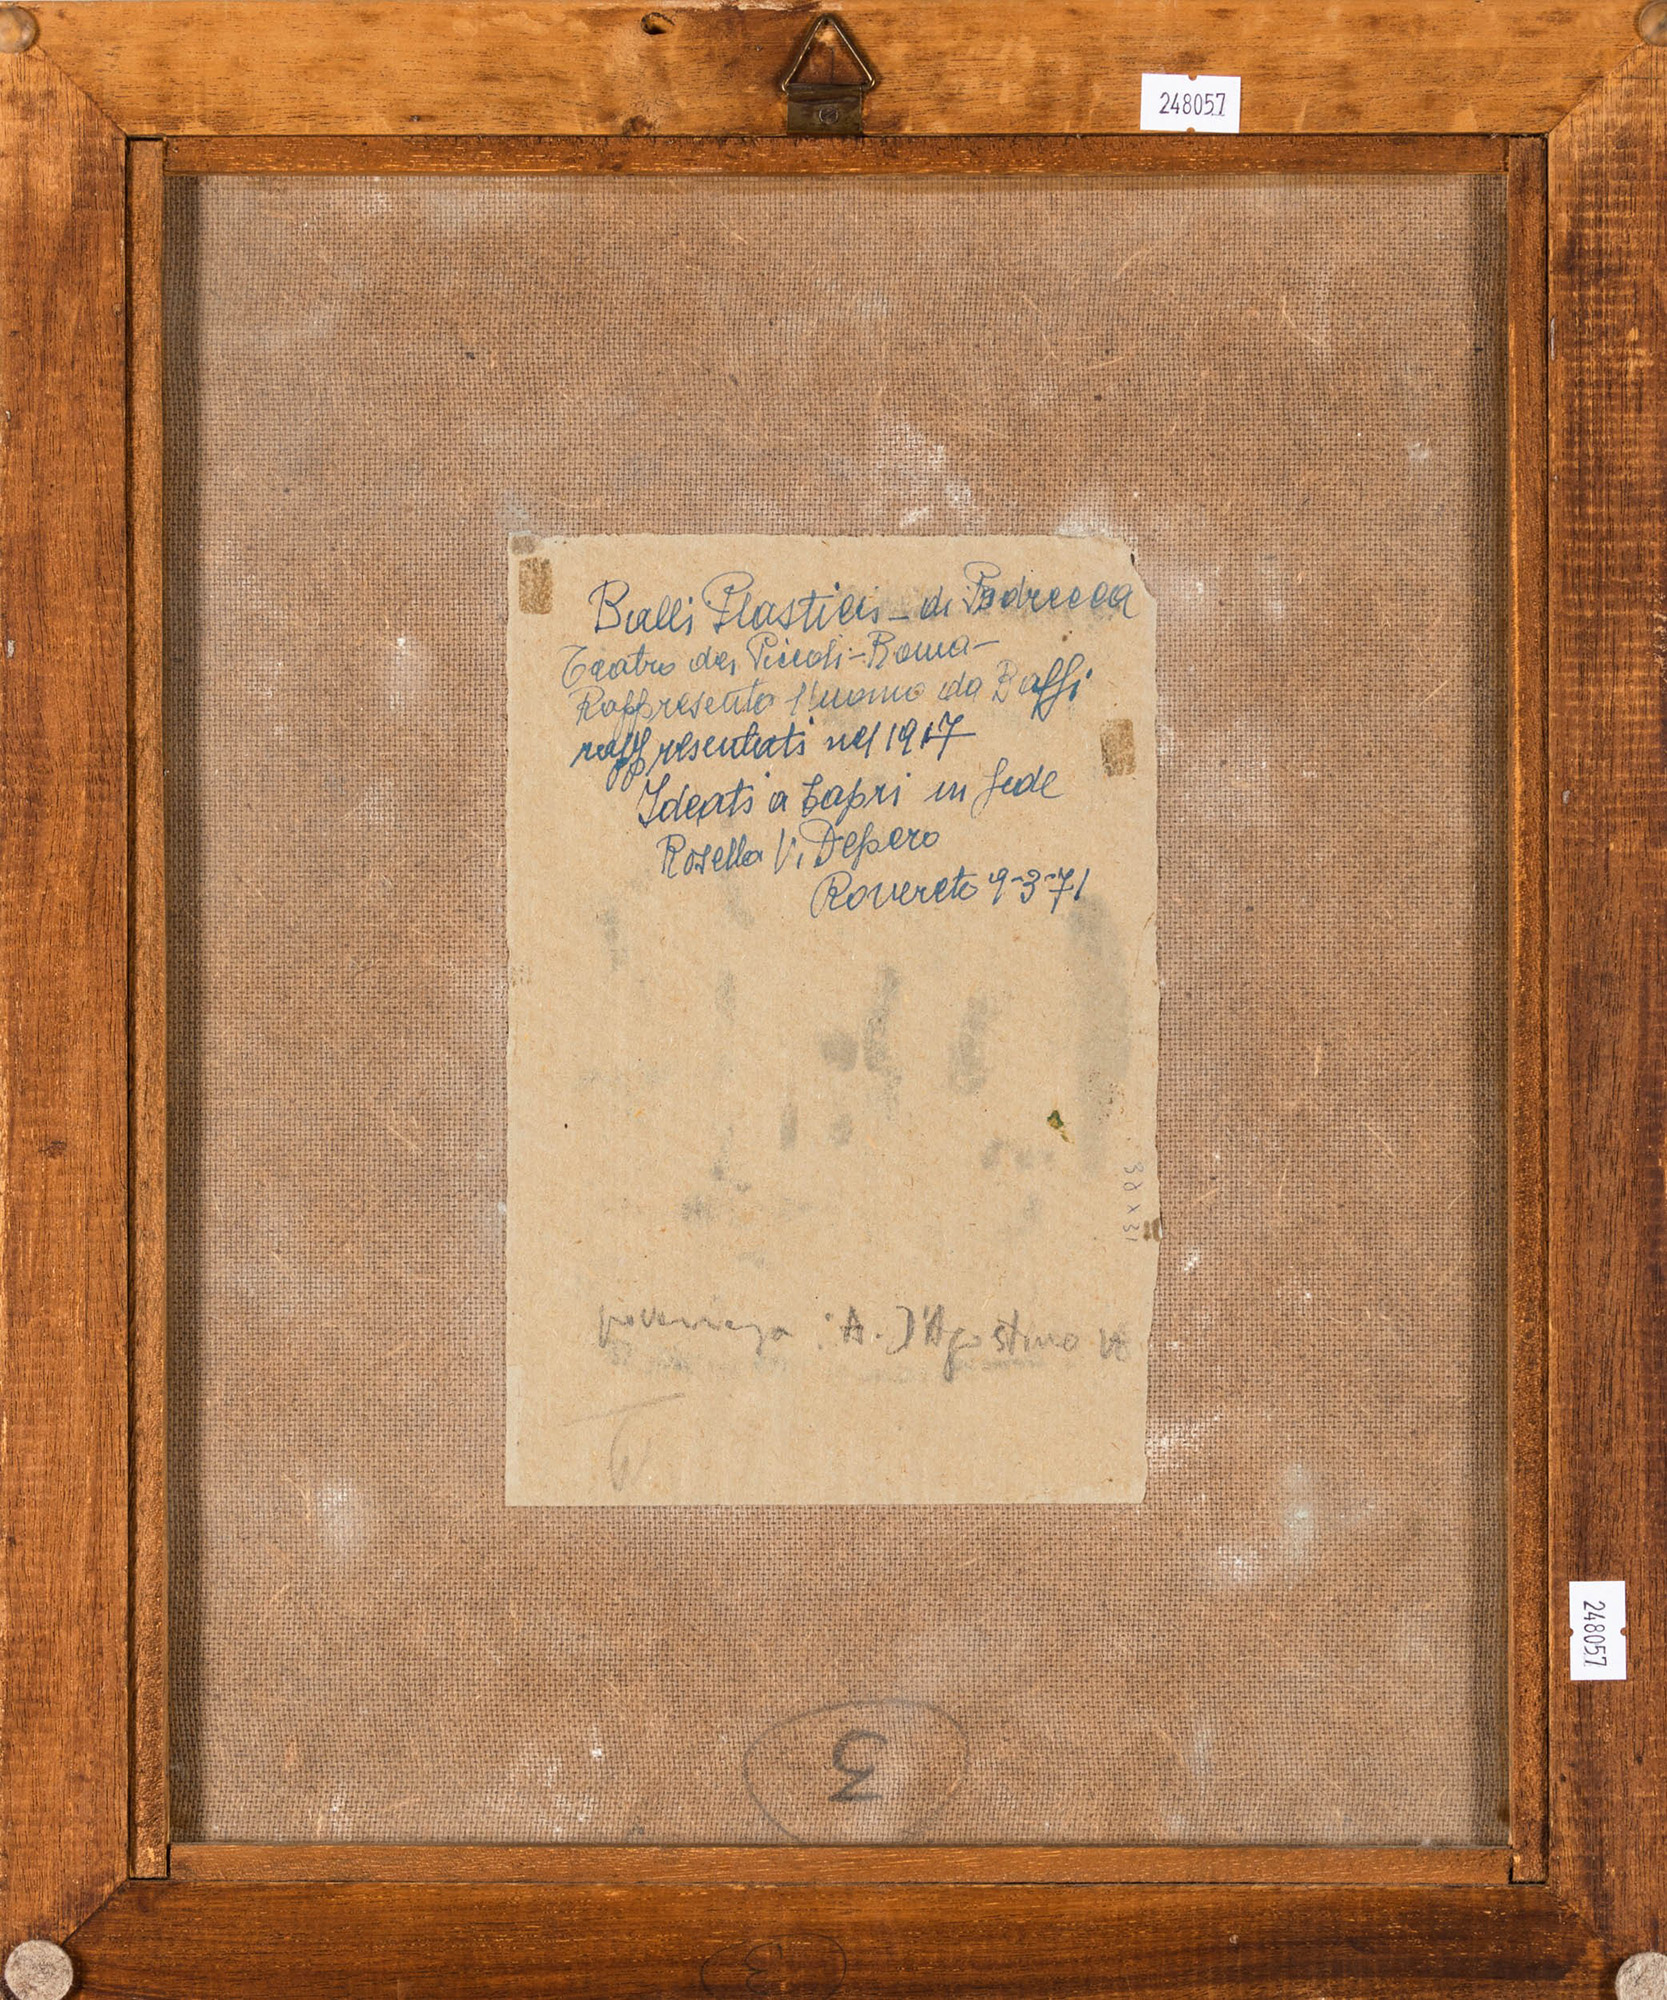 248057
Balli Plastici - di Podrecca
Teatro dei Piccoli - Roma -
Rappresenta l'uomo da Baffi
rappresentati nel 1917
Ideati a Capri in fede
Rosetta V. Depero
Rovereto 9-3-71
38 x 31
provenienza : A. D'Agostino
248057
3
3